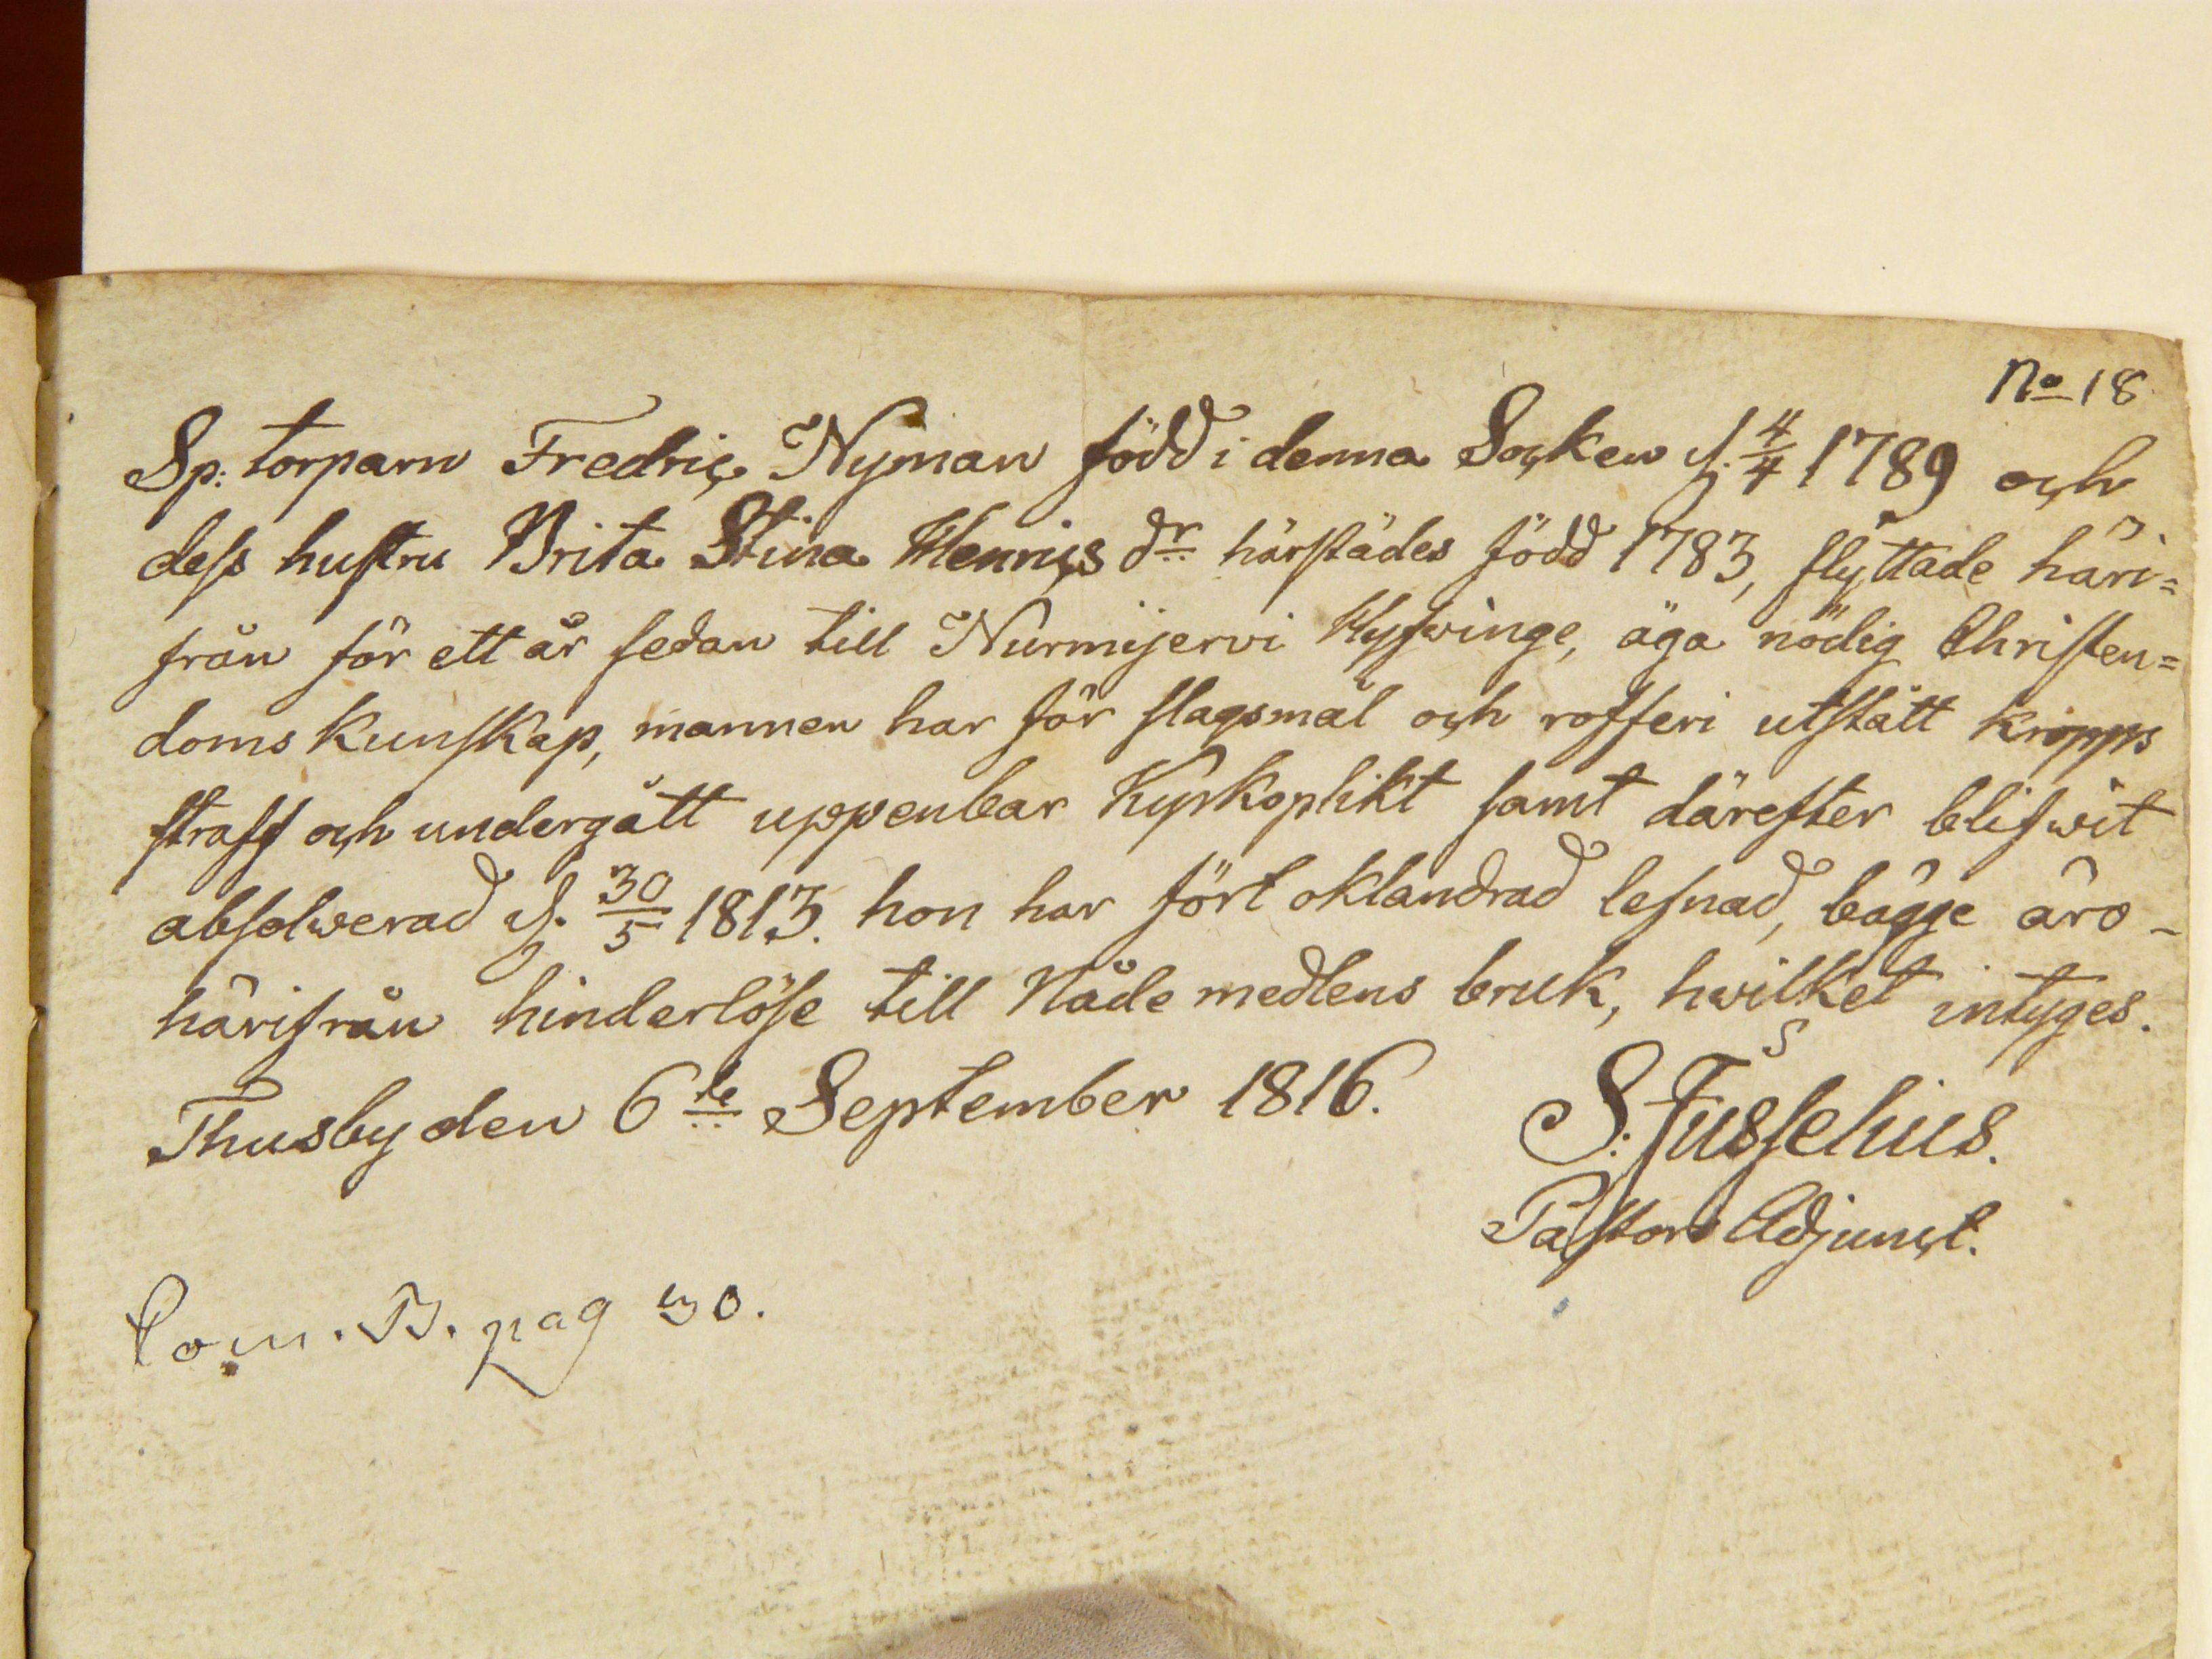 No 18
Sp: torparn Fredric Nyman född i denna Socken d. 4/4 1789 och
dess hustru Brita Stina Henrics dr härstädes född 1783, flyttade häri=
från för ett år sedan till Nurmijervi Hyfvinge, äga nödig Christen=
doms kunskap, mannen har för slagsmål och rofferi utstått kropps
straff och undergått uppenbar Kyrkoplikt samt därefter blifwit
absolwerad d. 30/5 1813. hon har fört oklandrad lefnad, bägge äro -
härifrån hinderlöse till Nådemedlens bruk, hwilket intyges.
Thusby den 6te September 1816.
S. Fusselius.
Pastors Adjunct.
Com. B. pag 30.